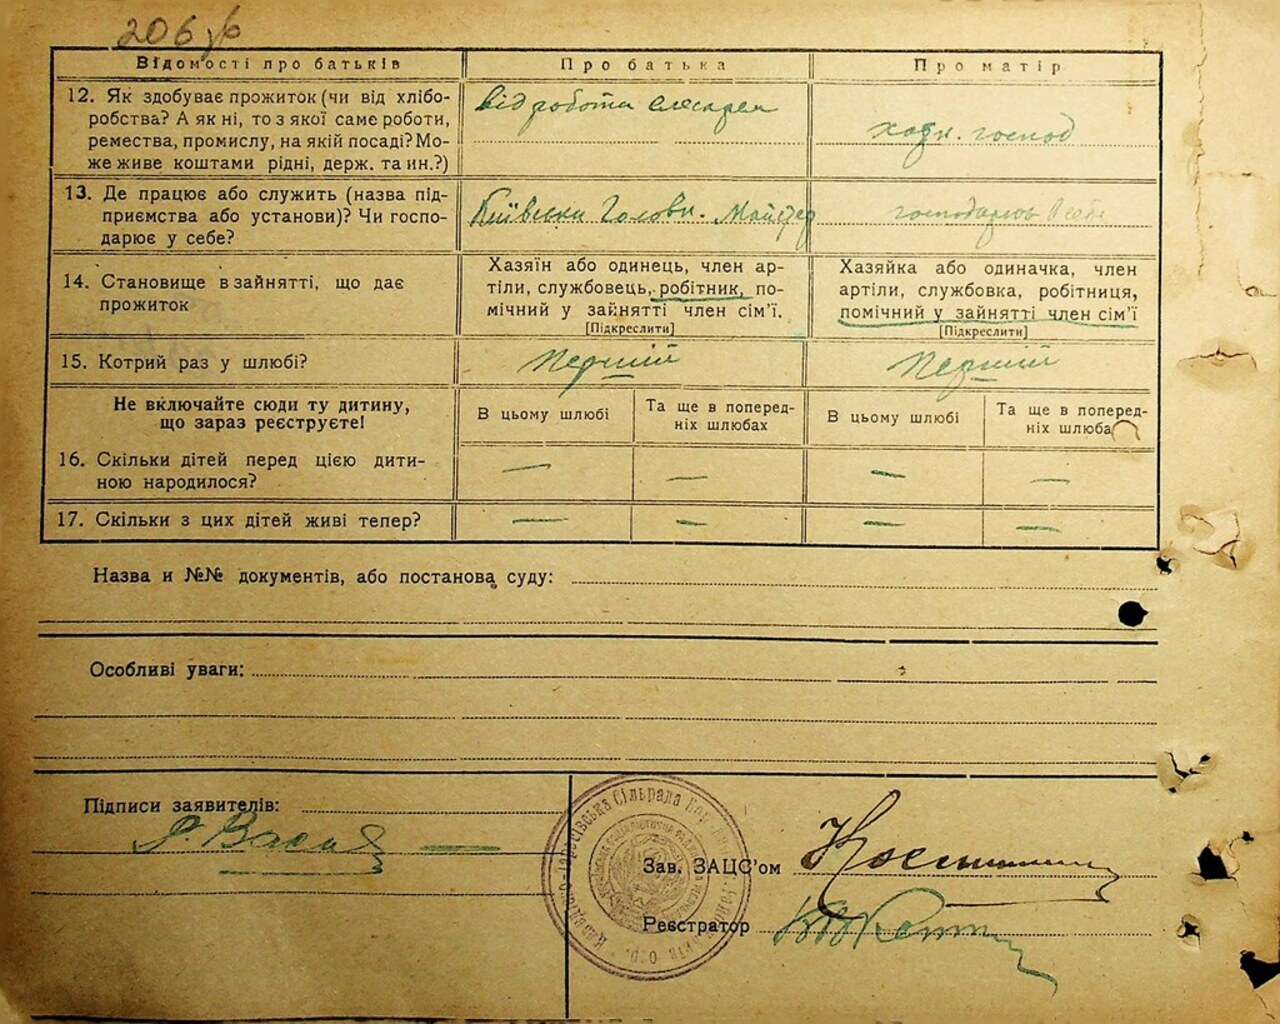 206 зв
Відомості про батьків
Про батька
Про матір
12. Як здобуває прожиток (чи від хлібо-
робства? А як ні, то з якої саме роботи,
ремества, промислу, на якій посаді? Мо-
же живе коштами рідні, держ. та ин.?)
від роботи слюсаря
хазн. господ
13. Де працює або служить (назва під-
приємства або установи)? Чи госпо-
дарює у себе?
Київськи Головн. Майстер
господарює в себе
14. Становище в зайнятті, що дає
прожиток
Хазяїн або одинець, член ар-
тіли, службовець, робітник, по-
мічний у зайнятті член сім'ї.
[Підкреслити]
Хазяйка або одиначка, член
артіли, службовка, робітниця,
помічний у зайнятті член сім'ї
[Підкреслити]
15. Котрий раз у шлюбі?
Перший
Перший
Не включайте сюди ту дитину,
що зараз реєструєте!
В цьому шлюбі
Та ще в поперед-
ніх шлюбах
В цьому шлюбі
Та ще в поперед-
ніх шлюба
16. Скільки дітей перед цією дити-
ною народилося?
— — — —
17. Скільки з цих дітей живі тепер?
— — — —
Назва и №№ документів, або постанова суду:
Особливі уваги:
Підписи заявителів:
Сільрада
Зав. ЗАЦС'ом
Реєстратор